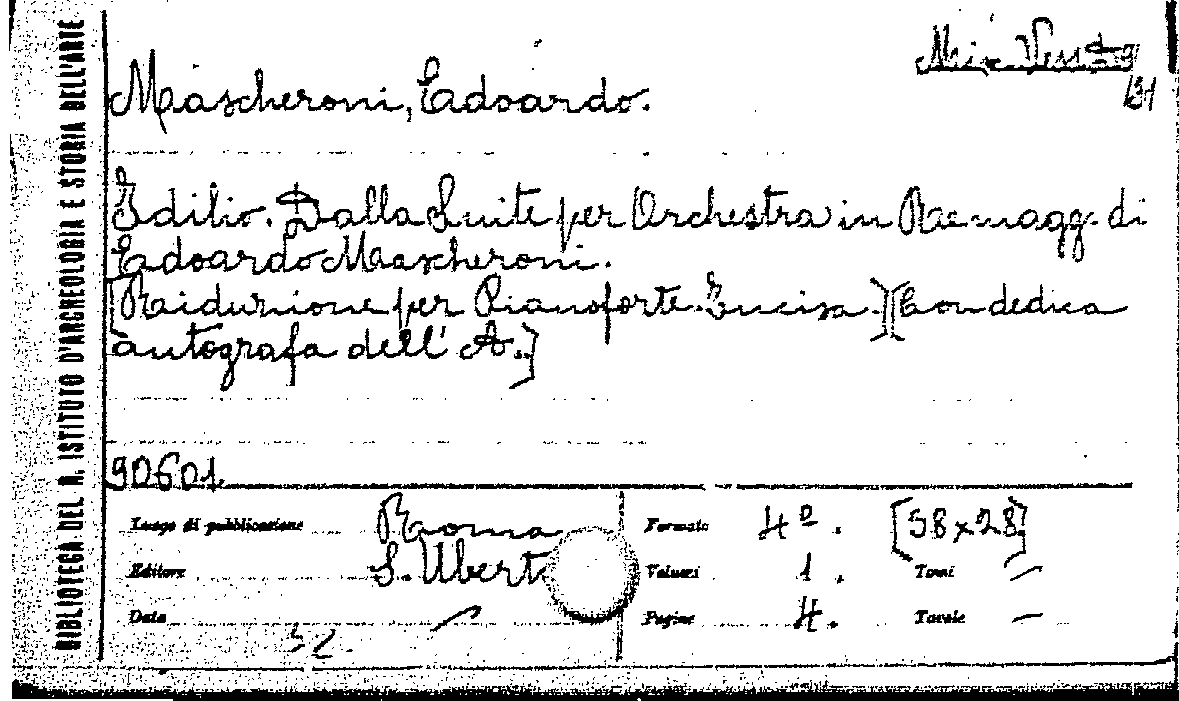 BIBLIOTECA DEL R. ISTITUTO D'ARCHEOLOGIA E STORIA DELL'ARTE
Mascheroni, Edoardo.
Idilio. Dalla Suite per Orchestra in Re magg. di
Edoardo Mascheroni.
[Riduzione per Pianoforte. Incisa.] [Con dedica
autografa dell' A.]
90601
Luogo di pubblicazione Roma
Formato 4º. [38x28]
Editore S. Uberti
Volumi 1. Tomi —
Data —
Pagine 4. Tavole —